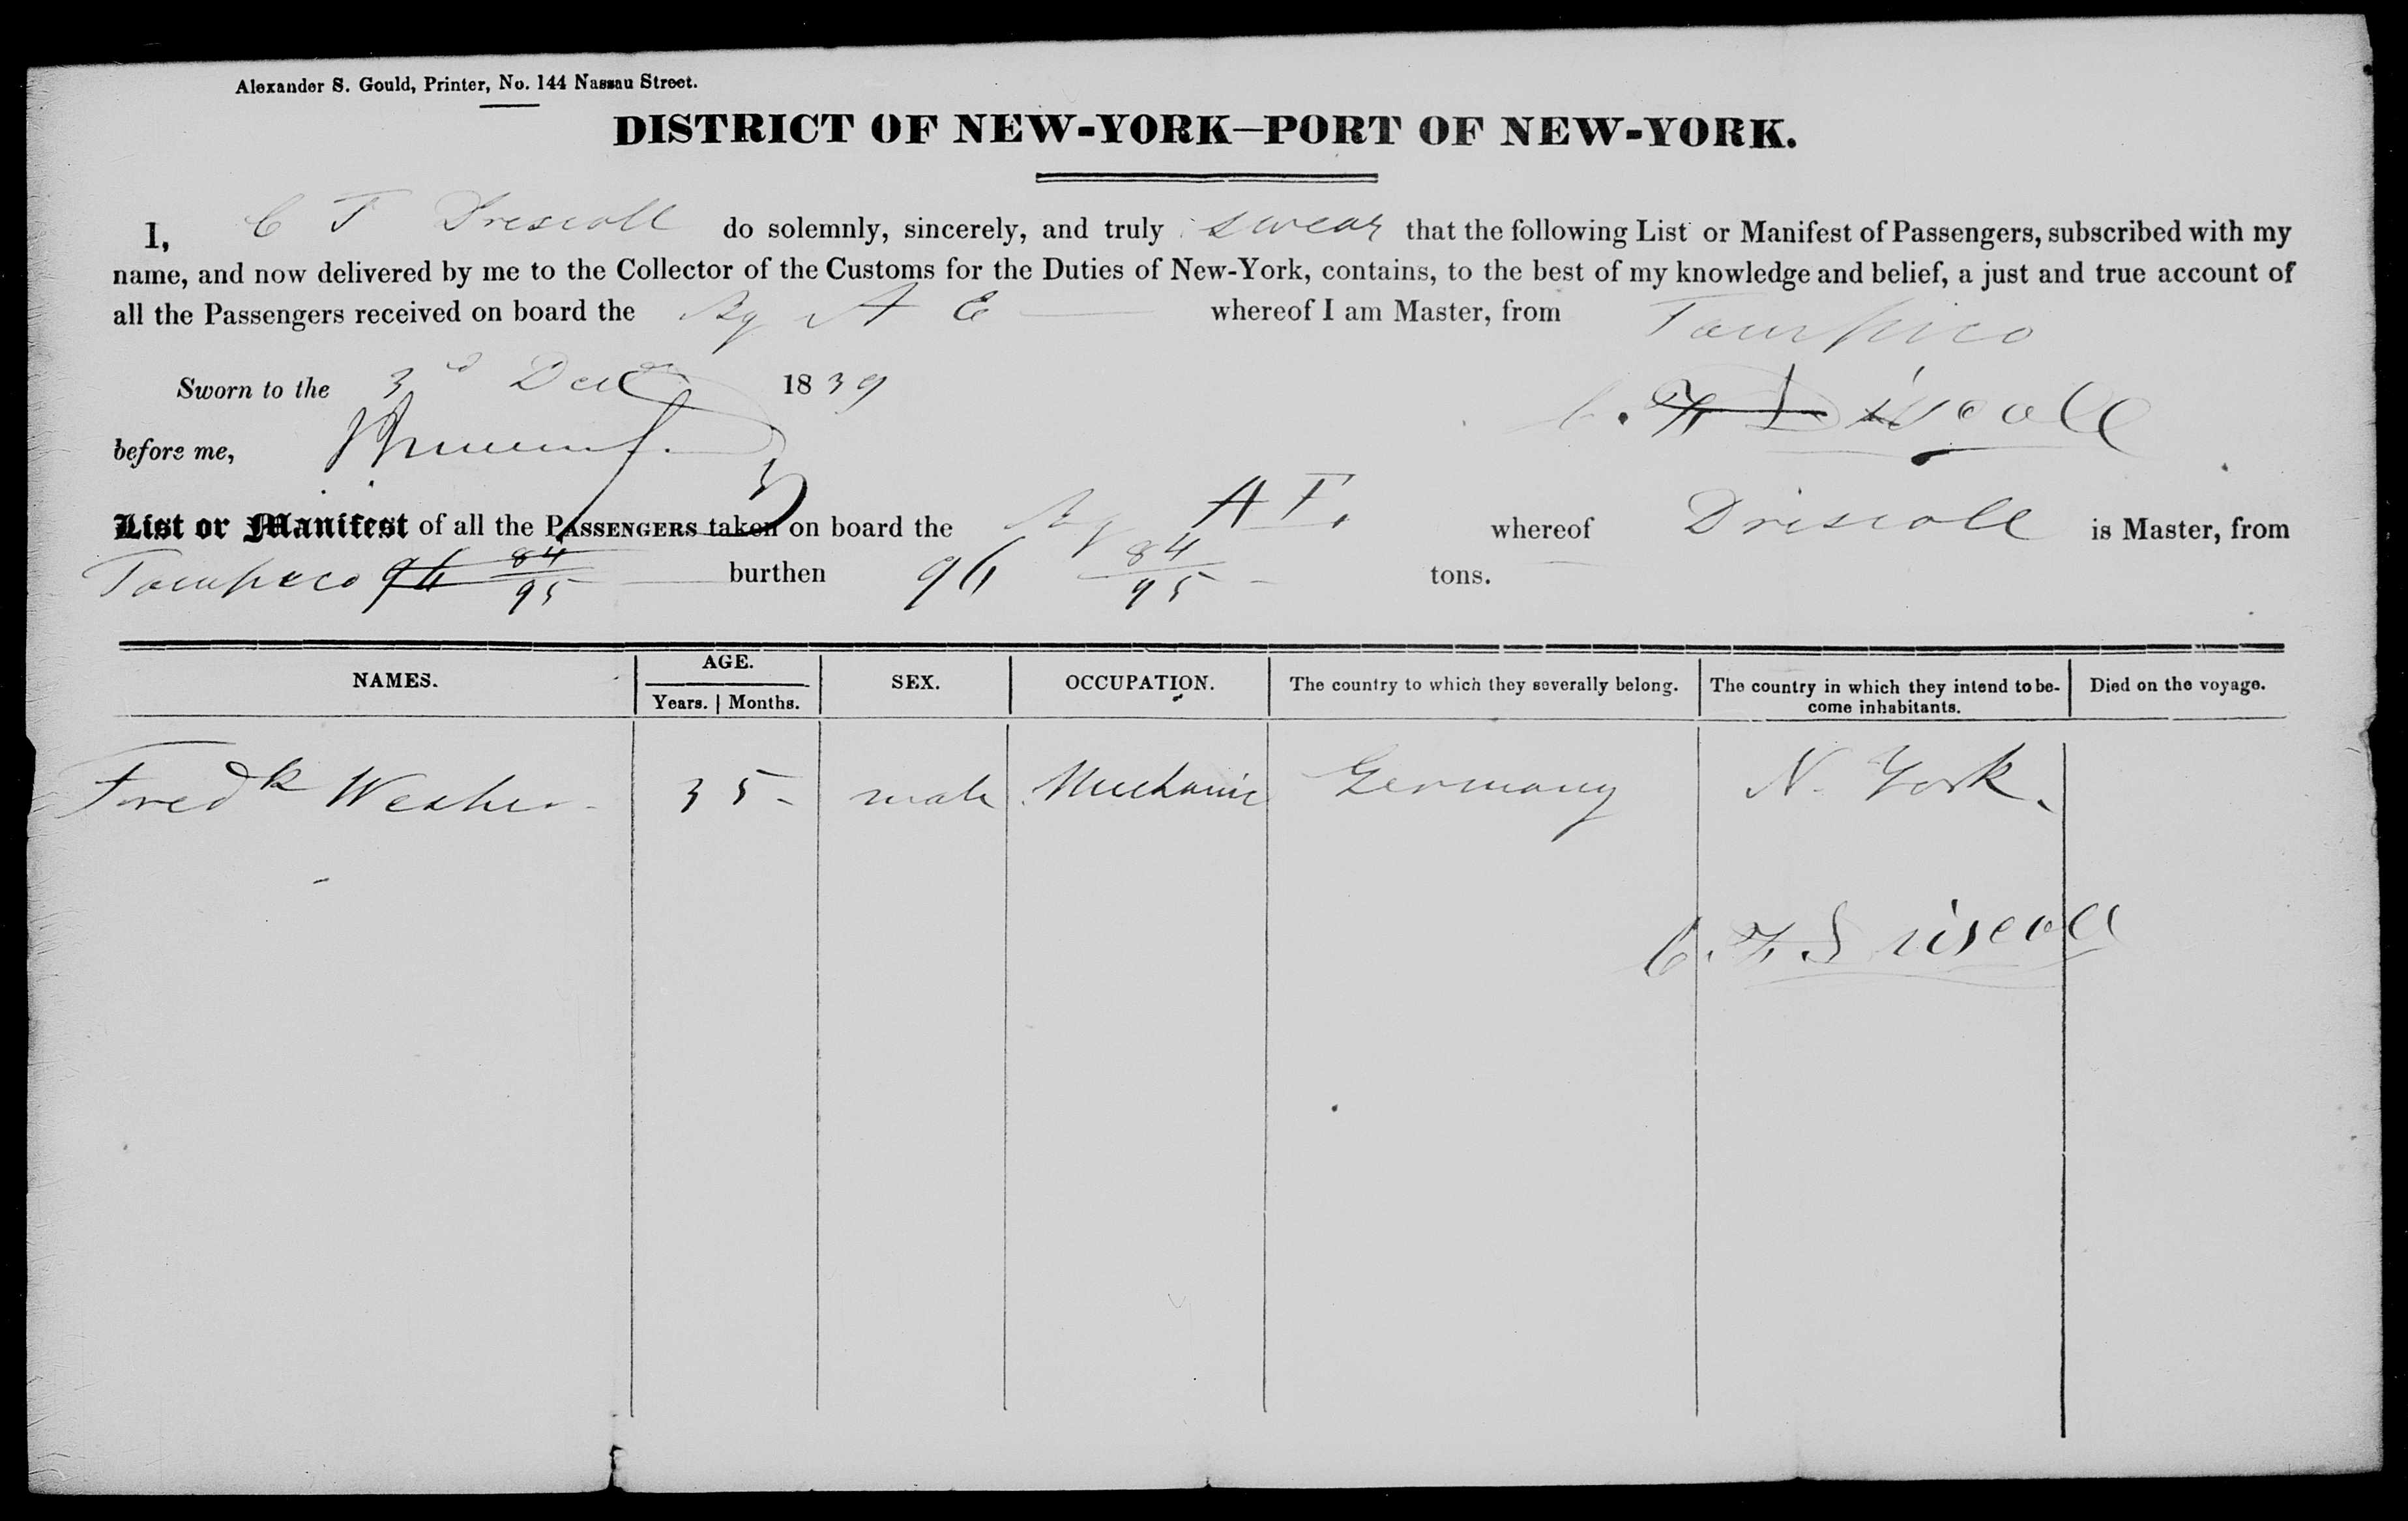 Alexander S. Gould, Printer, No. 144 Nassau Street.
DISTRICT OF NEW-YORK—PORT OF NEW-YORK.
I, C F Driscoll do solemnly, sincerely, and truly swear that the following List or Manifest of Passengers, subscribed with my
name, and now delivered by me to the Collector of the Customs for the Duties of New-York, contains, to the best of my knowledge and belief, a just and true account of
all the Passengers received on board the Bg A E whereof I am Master, from Tampico
Sworn to the 3d Dec 1839
C. F. Driscoll
before me,
List or Manifest of all the PASSENGERS taken on board the Bg A F. whereof Driscoll is Master, from
Tampico 96 84/95 burthen 96 84/95 tons.
NAMES. AGE. SEX. OCCUPATION. The country to which they severally belong. The country in which they intend to be- Died on the voyage.
Years. Months. come inhabitants.
Fredk 35 male Mechanic Germany N. York.
C. F. Driscoll